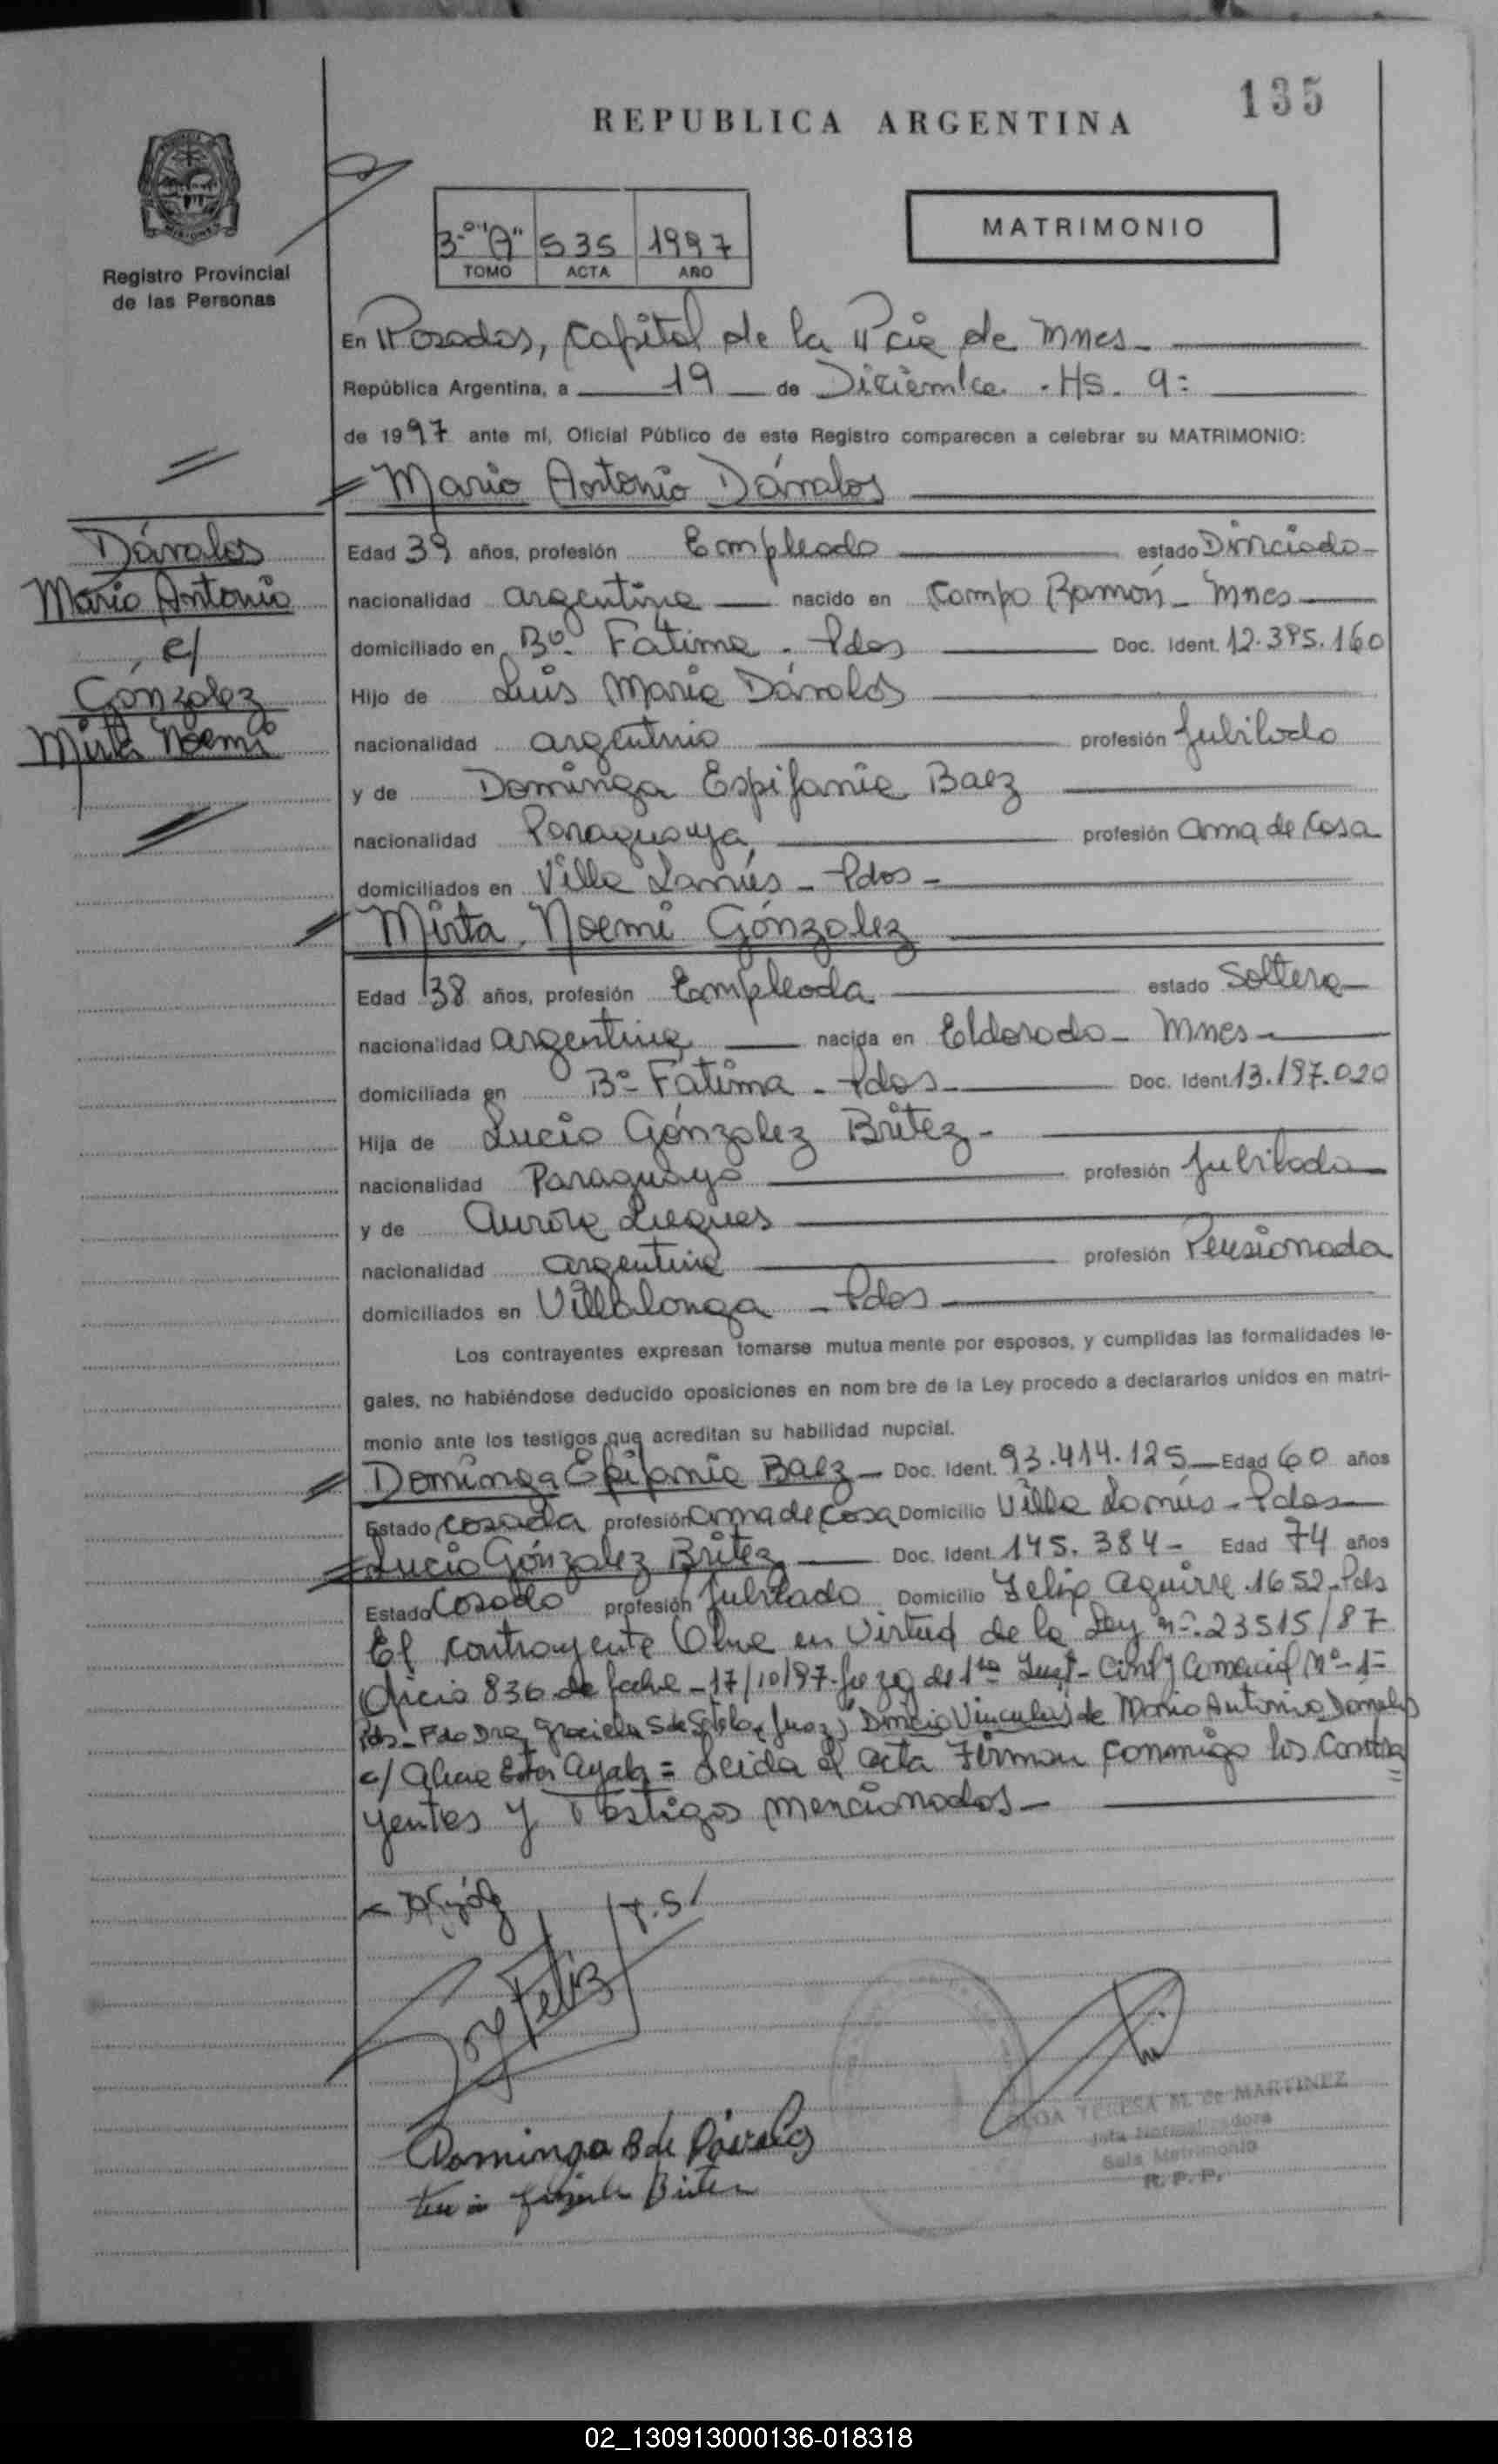 135
REPUBLICA ARGENTINA
MATRIMONIO
3-º "A" 535 1997
TOMO ACTA AÑO
Registro Provincial
de las Personas
En Posadas, Capital de la Pcia de Mnes-
República Argentina, a 19 de Diciembre. Hs. 9:
de 1997 ante mí, Oficial Público de este Registro comparecen a celebrar su MATRIMONIO:
Mario Antonio Dávalos
Dávalos
Mario Antonio
c/
Gónzalez
Mirta Noemi
Edad 39 años, profesión Empleado estado Divorciado-
nacionalidad argentina nacido en Campo Ramón - Mnes
domiciliado en Bº Fatima - Pdas Doc. Ident. 12.395.160
Hijo de Luis Maria Dávalos
nacionalidad argentino profesión Jubilado
y de Dominga Espifania Baez
nacionalidad Paraguaya profesión ama de Casa
domiciliados en Villa Lanús - Pdas -
Mirta Noemi Gónzalez
Edad 38 años, profesión Empleada estado Soltera
nacionalidad argentina nacida en Eldorado - Mnes-
domiciliada en Bº- Fatima - Pdas- Doc. Ident. 13.197.020
Hija de Lucio Gónzalez Britez-
nacionalidad Paraguayo profesión Jubilado
y de Aurora
nacionalidad argentina profesión Pensionada
domiciliados en Villalonga - Pdas
Los contrayentes expresan tomarse mutua mente por esposos, y cumplidas las formalidades le-
gales, no habiéndose deducido oposiciones en nom bre de la Ley procedo a declararlos unidos en matri-
monio ante los testigos que acreditan su habilidad nupcial.
Dominga Epifania Baez - Doc. Ident. 93.414.125 - Edad 60 años
Estado casada profesión ama de Casa Domicilio Villa Lanús - Pdas
Lucio Gónzalez Britez Doc. Ident. 145.384- Edad 74 años
Estado Casado profesión Jubilado Domicilio Felix Aguirre 1652 - Pds
El contrayente Obra en Virtud de la Ley nº. 23515/87
Oficio 836 de fecha - 17/10/97 - de 1ra Inst- Civil y Comercial Nº-1=
Pds- Fdo Dra Graciela S de Sotelo (Juez) Divorcio Vincular de Mario Antonio Dávalos
c/ Ayala = Leida el acta Firman conmigo los Contra
yentes y Testigos mencionados -
Dominga B de Dávalos
TERESA M. de MARTINEZ
Sala Matrimonio
R. P. P.
02_130913000136-018318